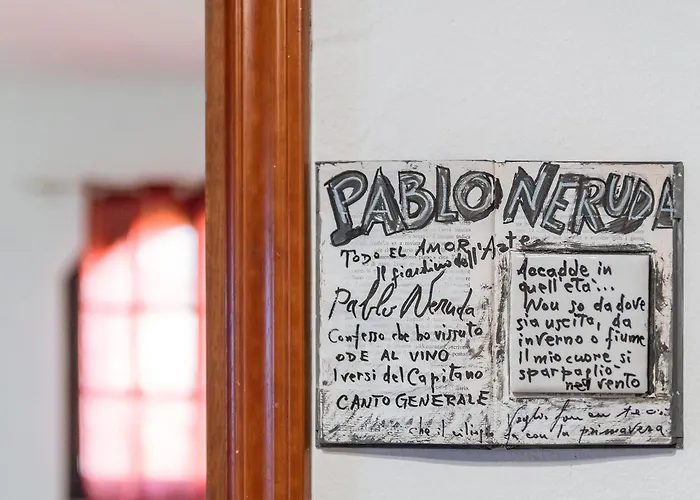 PABLO NERUDA
TODO EL AMOR
Il giardino dell'Arte
Pablo Neruda
Confesso che ho vissuto
ODE AL VINO
I versi del Capitano
CANTO GENERALE
che il
facadde in
quell'età...
Non so da dove
sia uscita, da
inverno o fiume
il mio cuore si
sparpagliò
nel vento
Voglio fare con te ciò
fa con la primavera